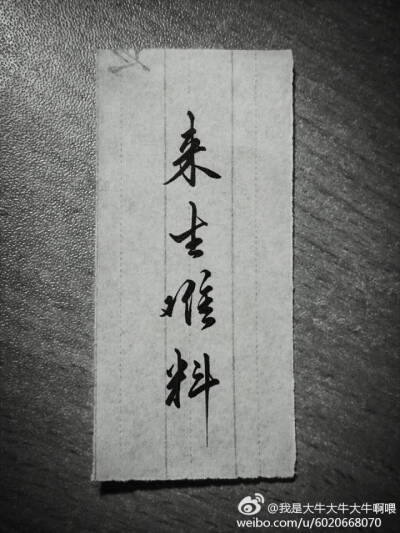 来生难料
@我是大牛大牛大牛啊喂
weibo.com/u/6020668070